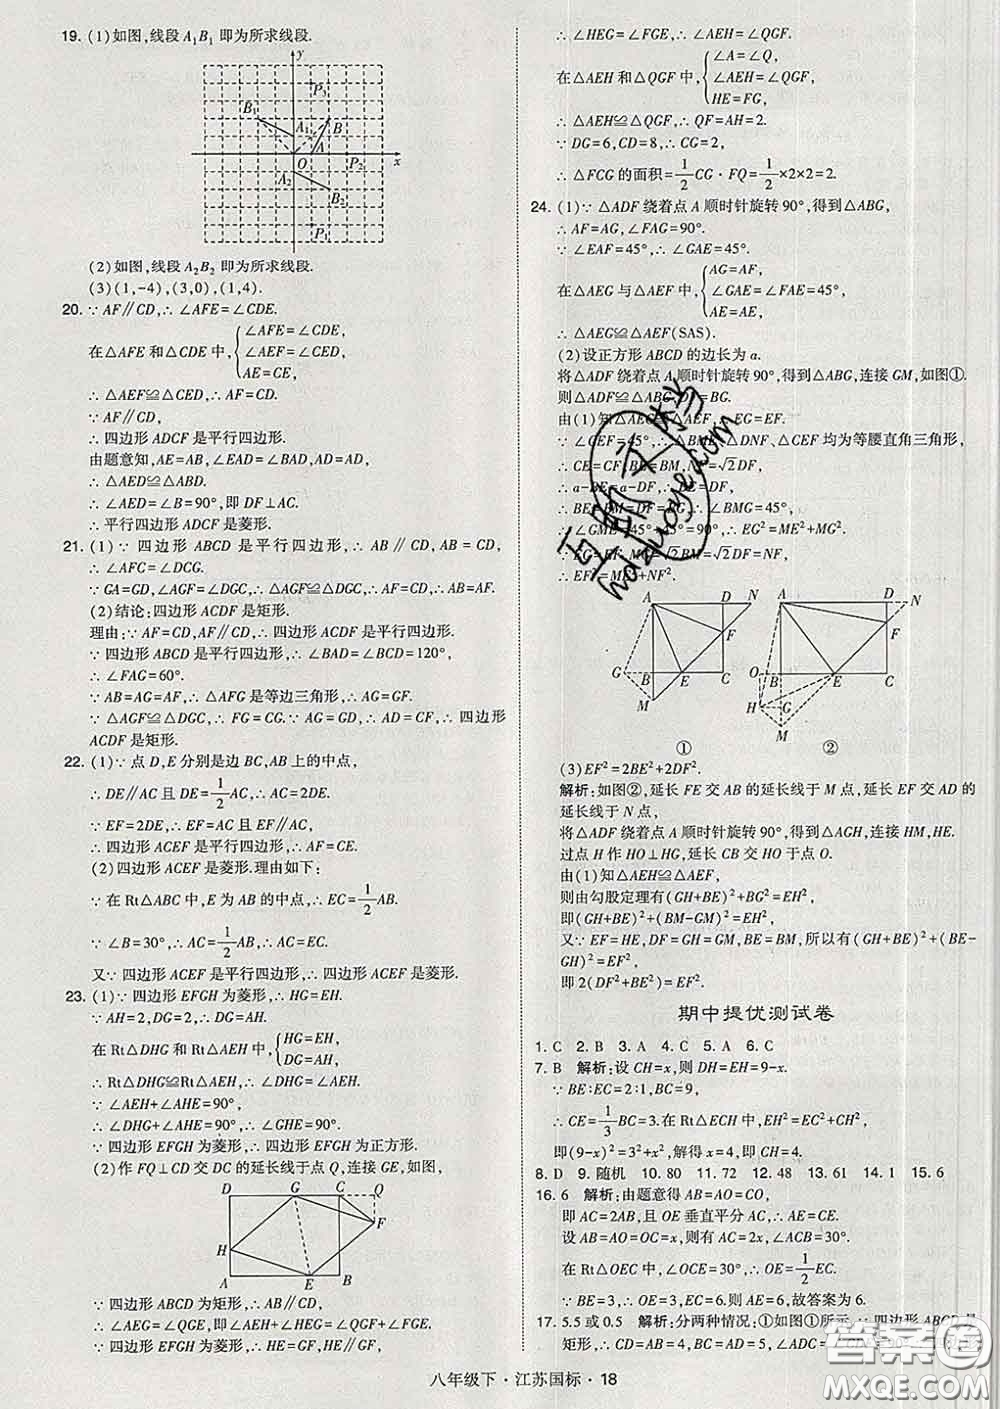 19. (1)如图,线段A₁B₁即为所求线段.
y
P₃
B₁
B
A₁
A
O
P₂
x
A₂
B₂
P₁
(2)如图,线段A₂B₂即为所求线段.
(3)(1,-4),(3,0),(1,4).
20. ∵AF∥CD,∴∠AFE=∠CDE.
在△AFE和△CDE中,{∠AFE=∠CDE, ∠AEF=∠CED, AE=CE.
∴△AFE≌△CDE,∴AF=CD.
∴四边形ADCF是平行四边形.
由题意知,AE=AB,∠EAD=∠BAD,AD=AD,
∴△AED≌△ABD.
∴∠AED=∠B=90°,即DF⊥AC.
∴平行四边形ADCF是菱形.
21. (1)∵四边形ABCD是平行四边形,∴AB∥CD,AB=CD,
∴∠AFC=∠DCG.
∵GA=GD,∠AGF=∠CGD,∴△AGF≌△DGC,∴AF=CD.
(2)结论:四边形ACDF是矩形.
理由:∵AF=CD,AF∥CD,∴四边形ACDF是平行四边形.
∵四边形ABCD是平行四边形,∴∠BAD=∠BCD=120°,
∴∠FAG=60°.
∵AB=AG=AF,∴△AFG是等边三角形,∴AG=GF.
∵△AGF≌△DGC,∴FG=CG.∵AG=GD,∴AD=CF,∴四边形
ACDF是矩形.
22. (1)∵点D,E分别是边BC,AB上的中点,
∴DE∥AC且DE=1/2AC.
∵EF=2DE,∴EF=AC且EF∥AC,
∴四边形ACEF是平行四边形,∴AF=CE.
(2)四边形ACEF是菱形.理由如下:
∵在Rt△ABC中,E为AB的中点,∴EC=1/2AB.
∵∠B=30°,∴AC=1/2AB,∴AC=EC.
又∵四边形ACEF是平行四边形,∴四边形ACEF是菱形.
23. (1)∵四边形EFGH为菱形,∴HG=EH,
∵AH=2,DG=2,∴DG=AH,
在Rt△DHG和Rt△AEH中,{HG=EH, DG=AH,
∴Rt△DHG≌Rt△AEH,∴∠DHG=∠AEH,
∵∠AEH+∠AHE=90°,
∴∠DHG+∠AHE=90°,∴∠GHE=90°,
∵四边形EFGH为菱形,∴四边形EFGH为正方形.
(2)作FQ⊥CD交DC的延长线于点Q,连接GE,如图,
D G C Q
F
H
A E B
∵四边形ABCD为矩形,∴AB∥CD,
∴∠AEG=∠QGE,即∠AEH+∠HEG=∠QGF+∠FGE,
∵四边形EFGH为菱形,∴HE=GF,HE∥GF,
∴∠HEG=∠FGE,∴∠AEH=∠QGF.
在△AEH和△QGF中,{∠A=∠Q, ∠AEH=∠QGF, HE=FG,
∴△AEH≌△QGF,∴QF=AH=2.
∵DG=6,CD=8,∴CG=2,
∴△FCG的面积=1/2CG·FQ=1/2×2×2=2.
24. (1)∵△ADF绕着点A顺时针旋转90°,得到△ABG,
∴AF=AG,∠FAG=90°.
∵∠EAF=45°,∴∠GAE=45°.
在△AEG与△AEF中,{AG=AF, ∠GAE=∠FAE=45°, AE=AE,
∴△AEG≌△AEF(SAS).
(2)设正方形ABCD的边长为a.
将△ADF绕着点A顺时针旋转90°,得到△ABG,连接GM,如图①.
则△ADF≌△ABG,DF=BG.
由(1)知△AEG≌△AEF,∴EG=EF.
∵∠CEF=45°,∴△BME、△DNF、△CEF均为等腰直角三角形,
∴CE=CF,BE=BM,NF=√2DF,
∴a-BE=a-DF,∴BE=DF,
∴BE=BM=DF=BG,∴∠BMG=45°,
∴∠GME=45°+45°=90°,∴EG²=ME²+MG².
∵EG=EF,MG=√2BM=√2DF=NF,
∴EF²=ME²+NF².
A D N
F
G B E C
M
①
A D N
F
O B E C
H G
M
②
(3)EF²=2BE²+2DF².
解析:如图②,延长FE交AB的延长线于M点,延长EF交AD的
延长线于N点,
将△ADF绕着点A顺时针旋转90°,得到△AGH,连接HM,HE.
过点H作HO⊥HG,延长CB交HO于点O.
由(1)知△AEH≌△AEF,
则由勾股定理有(GH+BE)²+BG²=EH²,
即(GH+BE)²+(BM-GM)²=EH²,
又∵EF=HE,DF=GH=GM,BE=BM,所以有(GH+BE)²+(BE-
GH)²=EF²,
即2(DF²+BE²)=EF².
期中提优测试卷
1. C 2. B 3. A 4. C 5. A 6. C
7. B 解析:设CH=x,则DH=EH=9-x.
∵BE:EC=2:1,BC=9,
∴CE=1/3BC=3.在Rt△ECH中,EH²=EC²+CH²,
即(9-x)²=3²+x²,解得x=4,即CH=4.
8. D 9. 随机 10. 80 11. 72 12. 48 13. 61 14. 1 15. 6
16. 6 解析:由题意得AB=AO=CO,
即AC=2AB,且OE垂直平分AC,∴AE=CE.
设AB=AO=OC=x,则有AC=2x,∠ACB=30°.
在Rt△OEC中,∠OCE=30°,∴OE=1/2EC.
∵BE=3,∴OE=3,EC=6.则AE=6,故答案为6.
17. 5.5或0.5 解析:分两种情况:①如图①所示,∵四边形ABCD是
矩形,∴CD=AB=4,BC=AD=5,
八年级下·江苏国标·18
答案圈
MXQE.COM
hdzuoye.com